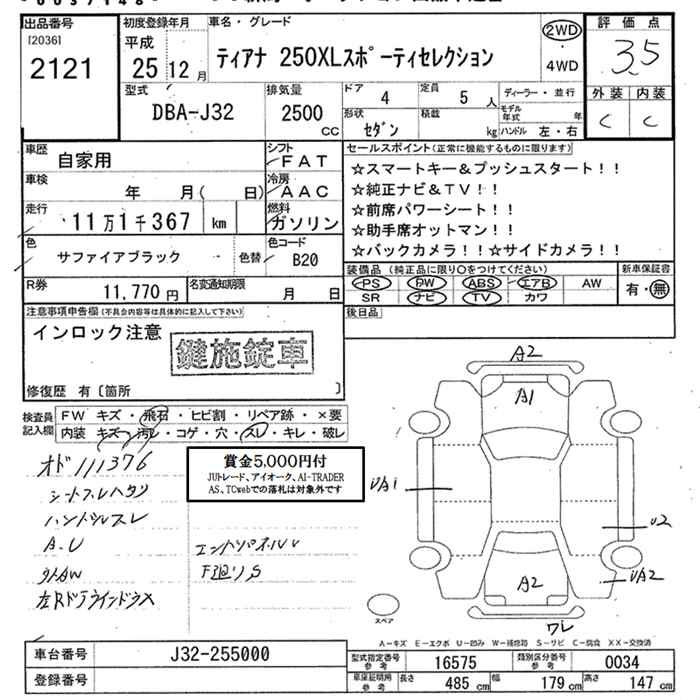 出品番号
[2036]
2121
初度登録年月
平成
25 12 月
車名・グレード
ティアナ 250XLスポーティセレクション
2WD
・
4WD
評価点
3.5
外装 内装
C C
型式
DBA-J32
排気量
2500
cc
ドア
4
定員
5 人
形状
セダン
積載
kg
ディーラー・並行
モデル年式 年
ハンドル 左・右
車歴
自家用
シフト
FAT
車検
年 月( 日)
冷房
AAC
走行
11万1千367 km
燃料
ガソリン
色
サファイアブラック
色替
色コード
B20
R券
11,770 円
名変通知期限
月 日
セールスポイント(正常に機能するものに限ります)
☆スマートキー&プッシュスタート!!
☆純正ナビ&TV!!
☆前席パワーシート!!
☆助手席オットマン!!
☆バックカメラ!!☆サイドカメラ!!
装備品(純正品に限り○をつけてください)
新車保証書
PS PW ABS エアB AW
有・無
SR ナビ TV カワ
後日品
注意事項申告欄(不具合内容等は具体的に記入して下さい)
インロック注意
鍵施錠車
修復歴 有〔箇所 〕
検査員
記入欄
FW キズ・飛石・ヒビ割・リペア跡・×要
内装 キズ・汚レ・コゲ・穴・スレ・キレ・破レ
オド111376
シートスレヘタリ
ハンドルスレ
A.U
外AW
左RドアウインドウX
賞金5,000円付
JUトレード、アイオーク、AI-TRADER
AS、TCwebでの落札は対象外です
下廻りS
A2
A1
UA1
U2
A2
UA2
ワレ
スペア
A-キズ E-エクボ U-凹み W-補修箇 S-サビ C-腐食 XX-交換済
車台番号
J32-255000
登録番号
型式指定番号
参考
16575
類別区分番号
参考
0034
車庫証明用
参考
長さ
485 cm
幅
179 cm
高さ
147 cm